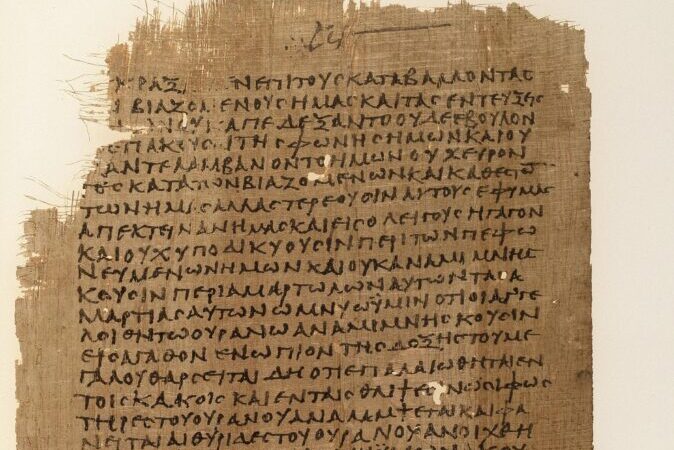 ΚΡΑΖ ΝΕΠΙΤΟΥΣΚΑΤΑΒΑΛΛΟΝΤΑΣ
ΒΙΑΖΟΜΕΝΟΥΣΗΜΑΣΚΑΙΤΑΣΕΝΤΕΥΞΕΙΣ
ΝΟΥΚΑΠΕΔΕΞΑΝΤΟΟΥΔΕΕΒΟΥΛΟΝ
ΕΠΑΚΟΥΣΑΙΤΗΣΦΩΝΗΣΗΜΩΝΚΑΙΟΥ
ΑΝΤΕΛΑΜΒΑΝΟΝΤΟΗΜΩΝΟΥΧΕΥΡΟΝ
ΤΕΣΚΑΤΑΤΩΝΒΙΑΖΟΜΕΝΩΝΚΑΙΚΑΘΕΣΤΩ
ΤΩΝΗΜΑΣΑΛΛΑΣΤΕΡΕΟΥΣΙΝΑΥΤΟΥΣΕΦΥΜΑΣ
ΑΠΕΚΤΕΙΝΑΝΗΜΑΣΚΑΙΕΙΣΟΛΕΙΓΟΥΣΗΓΑΓΟΝ
ΚΑΙΟΥΧΥΠΟΔΙΚΥΟΥΣΙΝΠΕΡΙΤΩΝΠΕΦΩ
ΝΕΥΜΕΝΩΝΗΜΩΝΚΑΙΟΥΚΑΝΑΜΙΜΝΗΣ
ΚΟΥΣΙΝΠΕΡΙΑΜΑΡΤΩΛΩΝΑΥΤΩΝΤΑΣΑ
ΜΑΡΤΙΑΣΑΥΤΩΝΩΜΝΥΩΥΜΙΝΟΤΙΟΙΑΓΓΕ
ΛΟΙΕΝΤΩΟΥΡΑΝΩΑΝΑΜΙΜΝΗΣΚΟΥΣΙΝ
ΕΙΣΑΓΑΘΟΝΕΝΩΠΙΟΝΤΗΣΔΟΞΗΣΤΟΥΜΕ
ΓΑΛΟΥΘΑΡΣΕΙΤΑΙΔΗΟΤΙΕΠΑΛΑΙΩΘΗΤΑΙΕΝ
ΤΟΙΣΚΑΚΟΙΣΚΑΙΕΝΤΑΙΣΘΛΙΨΕΣΙΝΩΣΙΦΩΣ
ΤΗΡΕΣΤΟΥΟΥΡΑΝΟΥΑΝΑΛΑΜΨΕΤΑΙΚΑΙΦΑ
ΝΕΙΤΑΙΑΙΘΥΡΙΔΕΣΤΟΥΟΥΡΑΝΟΥΑΝΟΙΧΘΗ